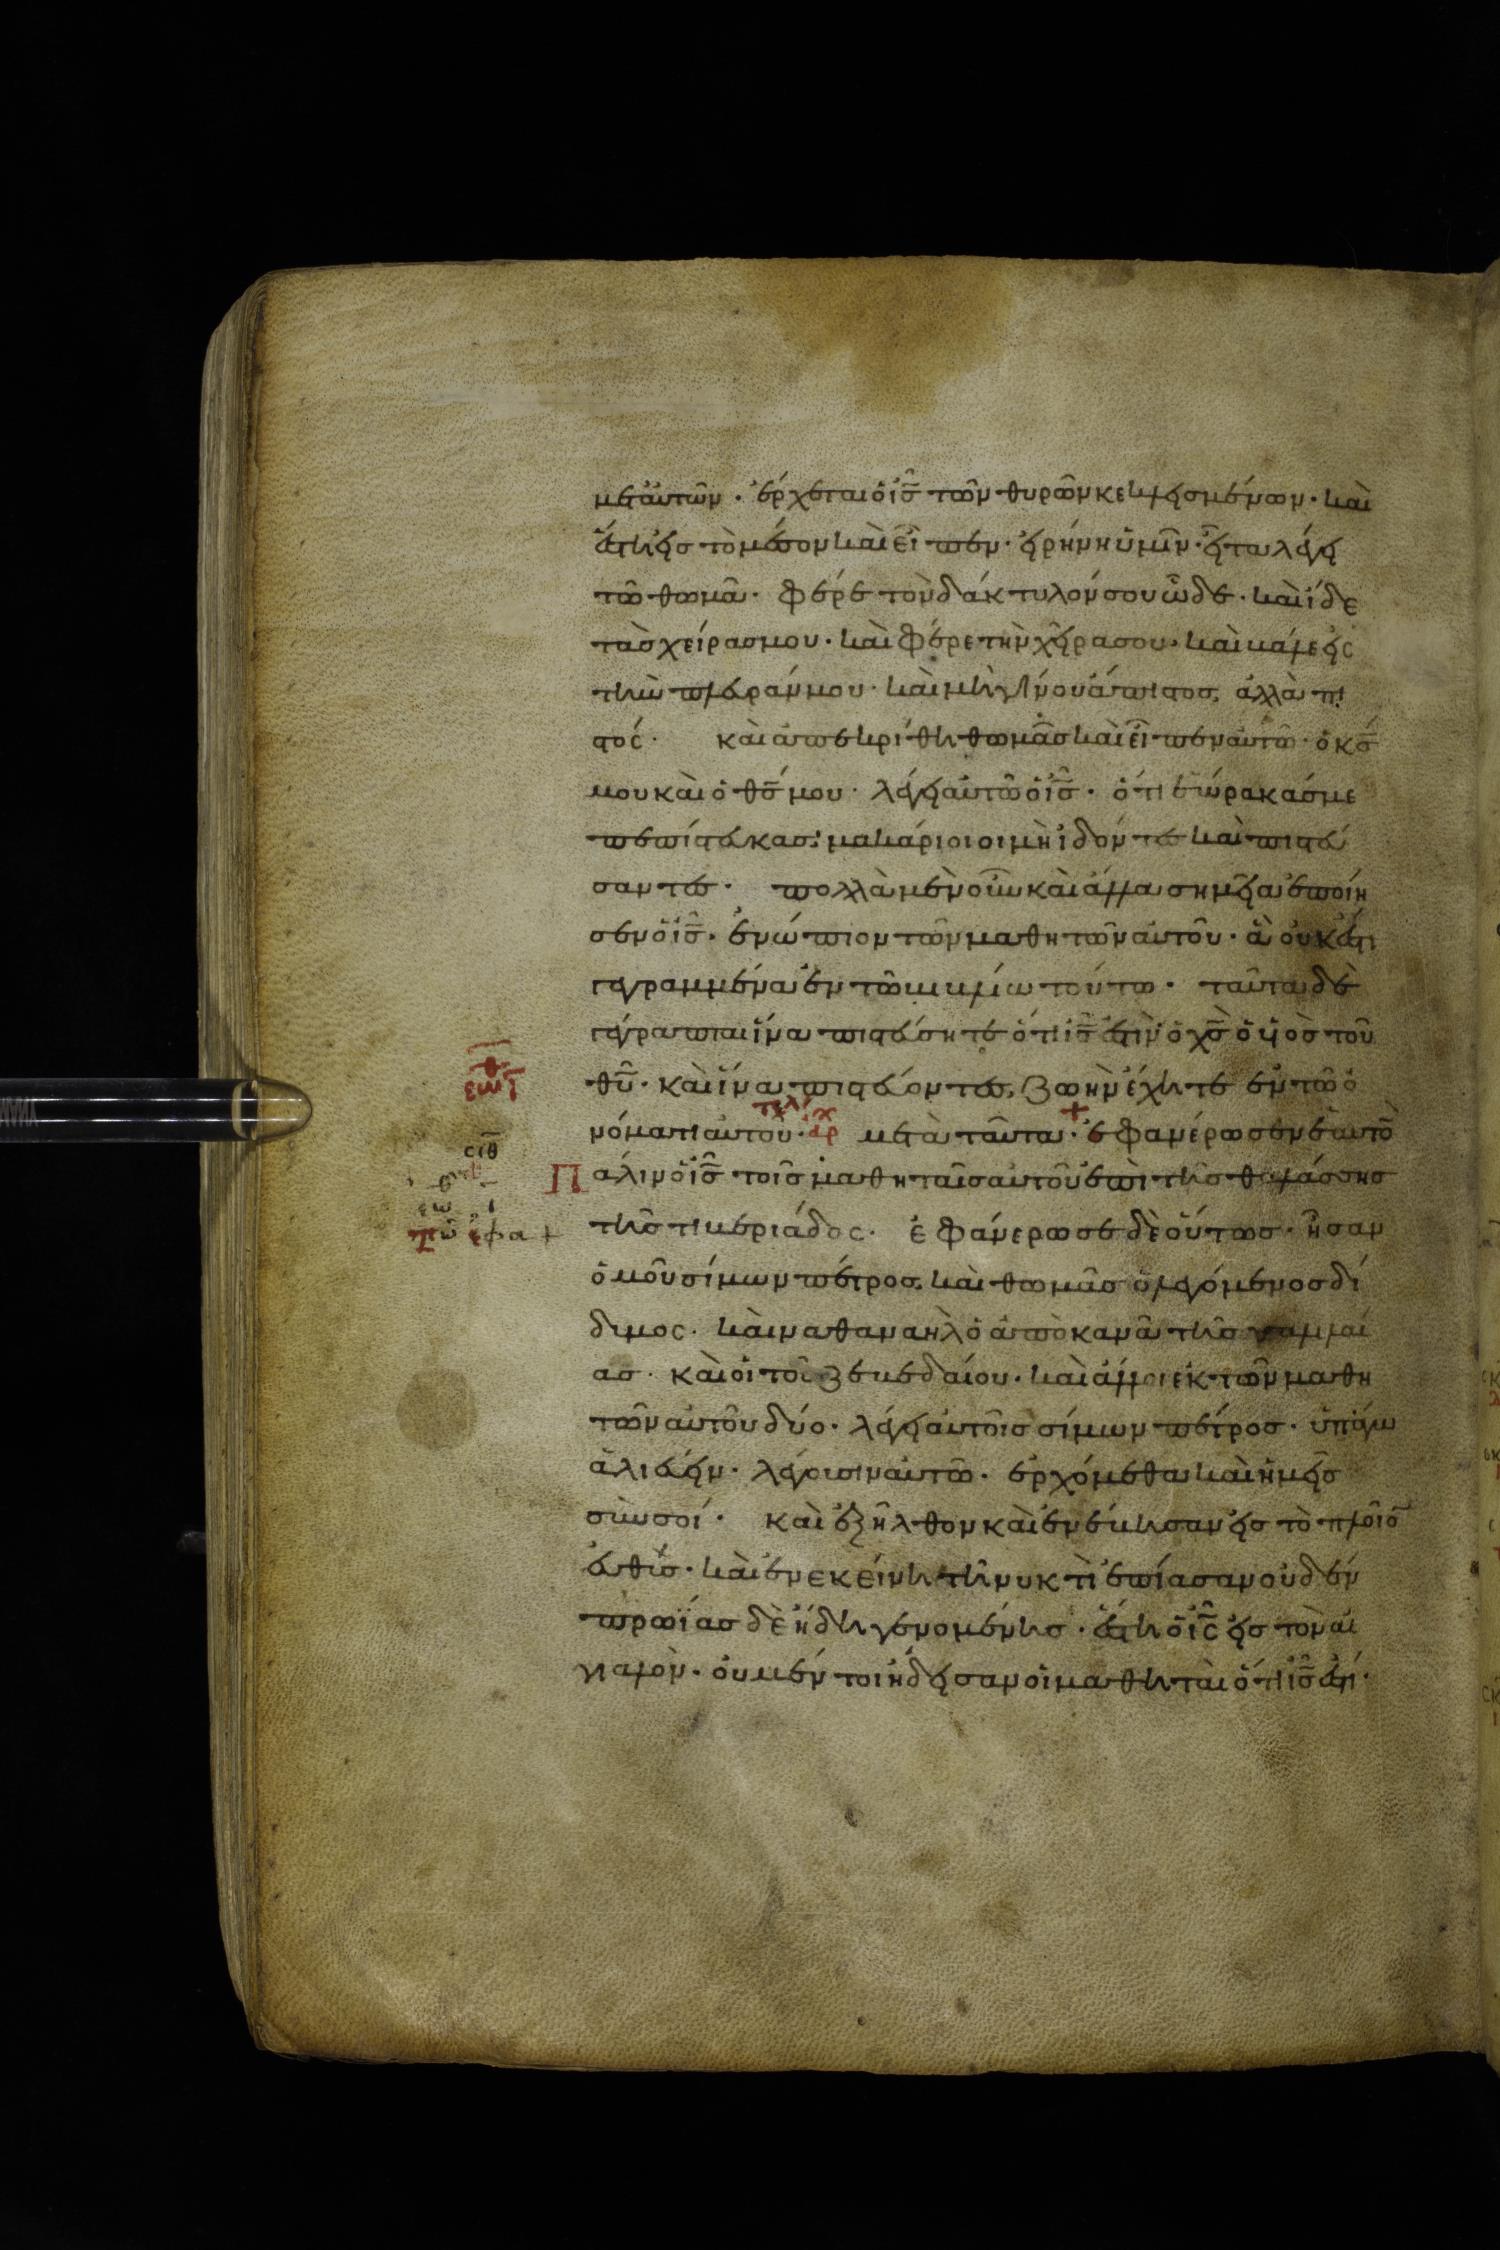 μετ αὐτῶν · ἔρχεται ὁ ι̅ς̅ τῶν θυρῶν κεκλεισμένων · καὶ
ἔστη εἰς τὸ μέσον καὶ εἶπεν · εἰρήνη ὑμῖν · εἶτα λέγει
τῶ θωμᾶ · φέρε τὸν δάκτυλόν σου ὧδε · καὶ ἴδε
τὰς χεῖράς μου · καὶ φέρε τὴν χεῖρα σου · καὶ βάλε εἰς
τὴν πλευράν μου · καὶ μὴ γίνου ἄπιστος, ἀλλὰ πι
στός · καὶ ἀπεκρίθη θωμᾶς καὶ εἶπεν αὐτῶ · ὁ κ̅ς̅
μου καὶ ὁ θ̅ς̅ μου · λέγει αὐτῶ ὁ ι̅ς̅ · ὅτι ἑώρακάς με
πεπίστευκας · μακάριοι οι μὴ ἰδόντες καὶ πιστεύ
σαντες · πολλὰ μὲν οὖν καὶ ἄλλα σημεῖα ἐποίη
σεν ὁ ι̅ς̅ · ἐνώπιον τῶν μαθητῶν αὐτοῦ · ἃ οὐκ ἔστι
γεγραμμένα ἐν τῶ βιβλίω τούτω · ταῦτα δὲ
γέγραπται ἵνα πιστεύσητε ὅτι ι̅ς̅ ἐστὶν ὁ χ̅ς̅ ὁ υἱὸς τοῦ
θ̅υ̅ · καὶ ἵνα πιστεύοντες, ζωὴν ἔχητε ἐν τῶ ὀ
τελ
νόματι αὐτου · αρχ μετὰ ταῦτα · + ἐφανέρωσεν ἑαὐτὸ
σιθ
Πάλιν ὁ ι̅ς̅ τοῖς μαθηταῖς αὐτοῦ ἐπὶ τῆς θαλάσσης
τῆς τιβεριάδος · ἐφανέρωσε δὲ οὕτως · ἦσαν
ὁμοῦ σίμων πέτρος, καὶ θωμᾶς ὁ λεγόμενος δί
διμος · καὶ ναθαναὴλ ὁ ἀπὸ κανᾶ τῆς γαλιλαί
ας · καὶ οἱ τοῦ ζεβεδαίου · καὶ ἄλλοι ἐκ τῶν μαθη
τῶν αὐτοῦ δύο · λέγει αὐτοῖς σίμων πέτρος · ὑπάγω
ἁλιεύειν · λέγουσιν αὐτῶ · ἐρχόμεθα καὶ ἡμεῖς
σὺν σοί · καὶ ἐξῆλθον καὶ ἐνέβησαν εἰς τὸ πλοῖο
εὐθύς · καὶ ἐν ἐκείνη τῆ νυκτὶ ἐπίασαν οὐδέν
πρωΐας δὲ ἤδη γενομένης · ἔστη ὁ ι̅ς̅ εἰς τὸν αἰ
γιαλὸν · ὀυ μέντοι ἤδεισαν οἱ μαθηταὶ ὅτι ι̅ς̅ ἐστί ·